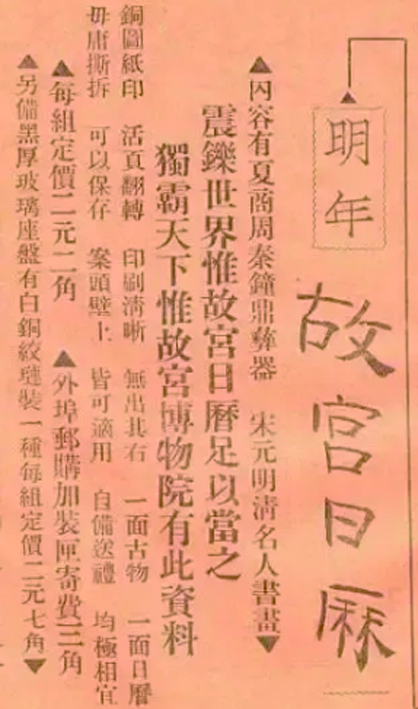 明年
故宮日厤
▲內容有夏商周秦鐘鼎彝器　宋元明清名人書畫▼
震鑠世界惟故宮日曆足以當之
獨霸天下惟故宮博物院有此資料
銅圖紙印　活頁翻轉　印刷清晰　無出其右　一面古物　一面日曆
毋庸撕拆　可以保存　案頭壁上　皆可適用　自備送禮　均極相宜
▲每組定價二元二角　▲外埠郵購加裝匣寄費三角
▲另備黑厚玻璃座盤有白銅絞璉裝一種每組定價二元七角▼